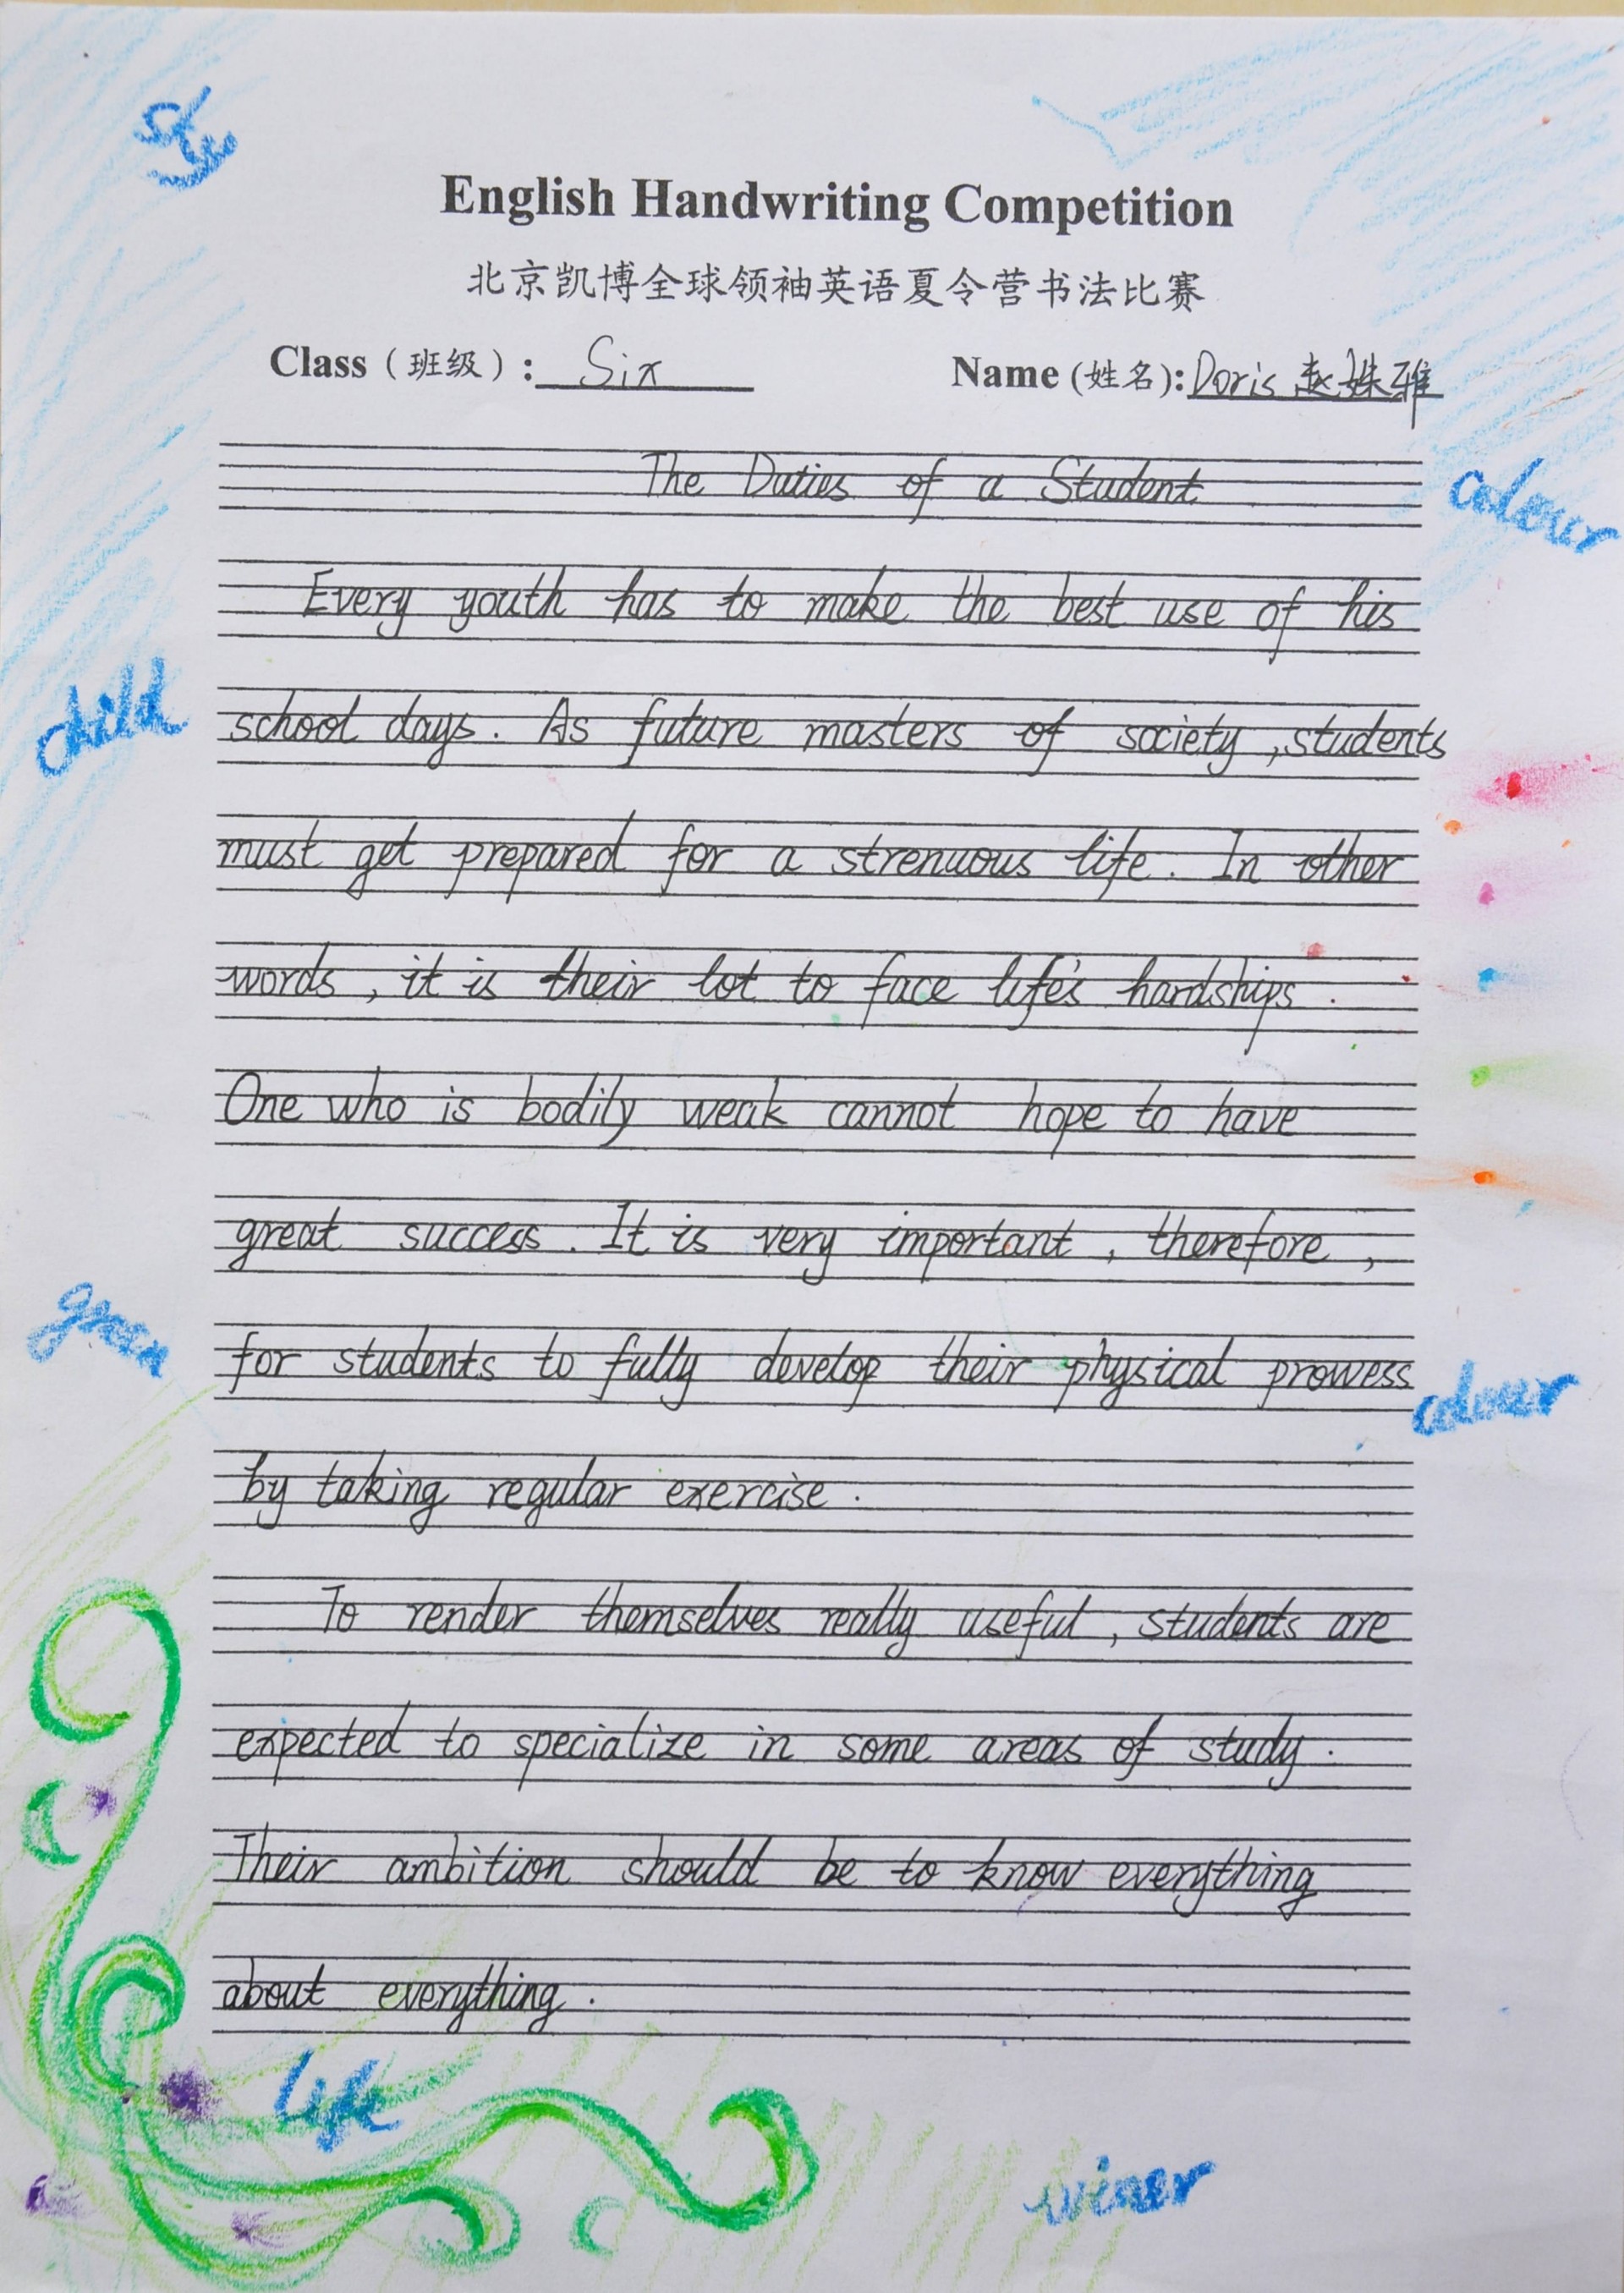 sky
English Handwriting Competition
北京凯博全球领袖英语夏令营书法比赛
Class (班级): Six Name (姓名): Doris 赵姝雅
The Duties of a Student
colour
Every youth has to make the best use of his
child
school days. As future masters of society, students
must get prepared for a strenuous life. In other
words, it is their lot to face life's hardships.
One who is bodily weak cannot hope to have
great success. It is very important, therefore,
green
for students to fully develop their physical prowess
colour
by taking regular exercise.
To render themselves really useful, students are
expected to specialize in some areas of study.
Their ambition should be to know everything
about everything.
life
winer